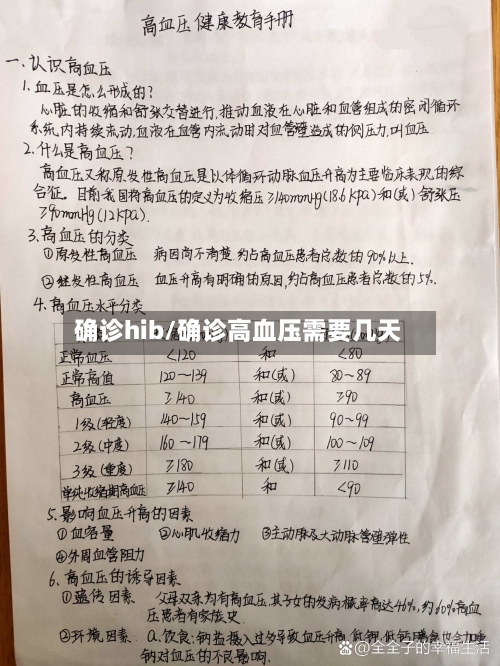 高血压健康教育手册
一.认识高血压
1.血压是怎么形成的?
心脏的收缩和舒张交替进行,推动血液在心脏和血管组成的密闭循环
系统内持续流动,血液在血管内流动时对血管壁造成的侧压力,叫血压
2.什么是高血压?
高血压又称原发性高血压是以体循环动脉血压升高为主要临床表现的综
合征。目前我国将高血压的定义为收缩压≥140mmHg(18.6kpa)和(或)舒张压
≥90mmHg(12kpa).
3.高血压的分类
①原发性高血压 病因尚不清楚,约占高血压患者总数的90%以上.
②继发性高血压 血压升高有明确的原因,约占高血压患者总数的5%.
4.高血压水平分类
确诊hib/确诊高血压需要几天
正常血压 <120 和 <80
正常高值 120~139 和(或) 80~89
高血压 ≥140 和(或) ≥90
1级(轻度) 140~159 和(或) 90~99
2级(中度) 160~179 和(或) 100~109
3级(重度) ≥180 和(或) ≥110
单纯收缩期高血压 ≥140 和 <90
5.影响血压升高的因素
①血容量 ②心肌收缩力 ③主动脉及大动脉管壁弹性
④外周血管阻力
6.高血压的诱导因素
①遗传因素 父母双亲均有高血压,其子女的发病概率高达46%,约60%高血
压患者有家族史.
②环境因素 a.饮食:钠盐摄入过多导致血压升高,低钾、低钙膳食也会加重
钠对血压的不良影响.
@全全子的幸福生活